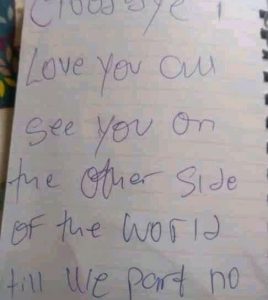 Goodbye I
Love you all
see you on
the other side
of the world
till we part no